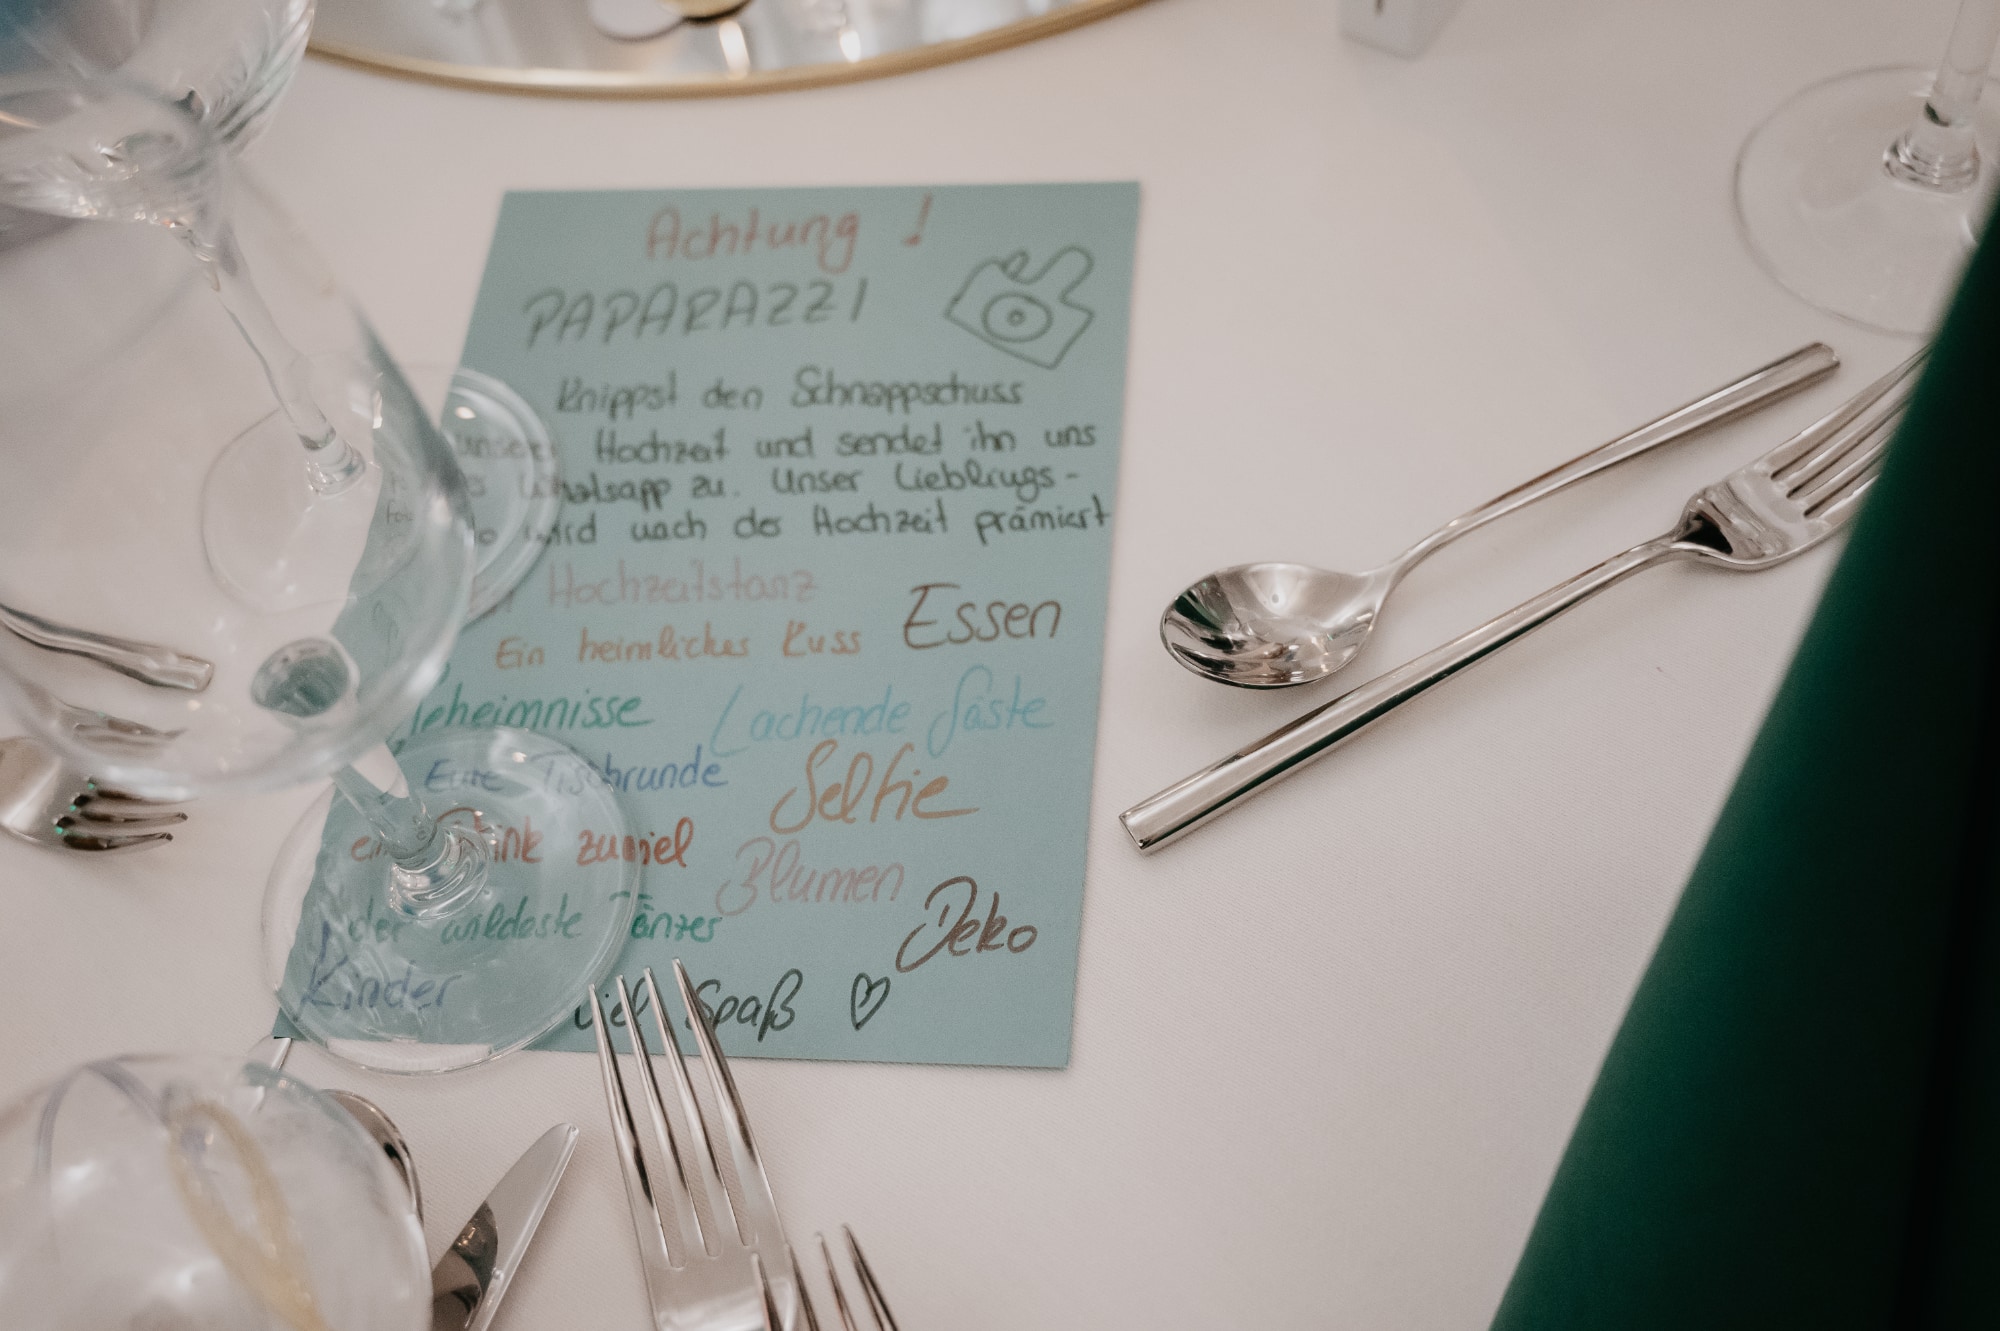 Achtung !
PAPARAZZI
Knippst den Schnappschuss
unserer Hochzeit und sendet ihn uns
Whatsapp zu. Unser Lieblings-
wird nach der Hochzeit prämiert
Hochzeitstanz
Essen
Ein heimlicher Kuss
Geheimnisse
Lachende Gäste
Eure Tischrunde
Selfie
ein Drink zuviel
Blumen
der wildeste Tänzer
Deko
Kinder
Viel Spaß ♡